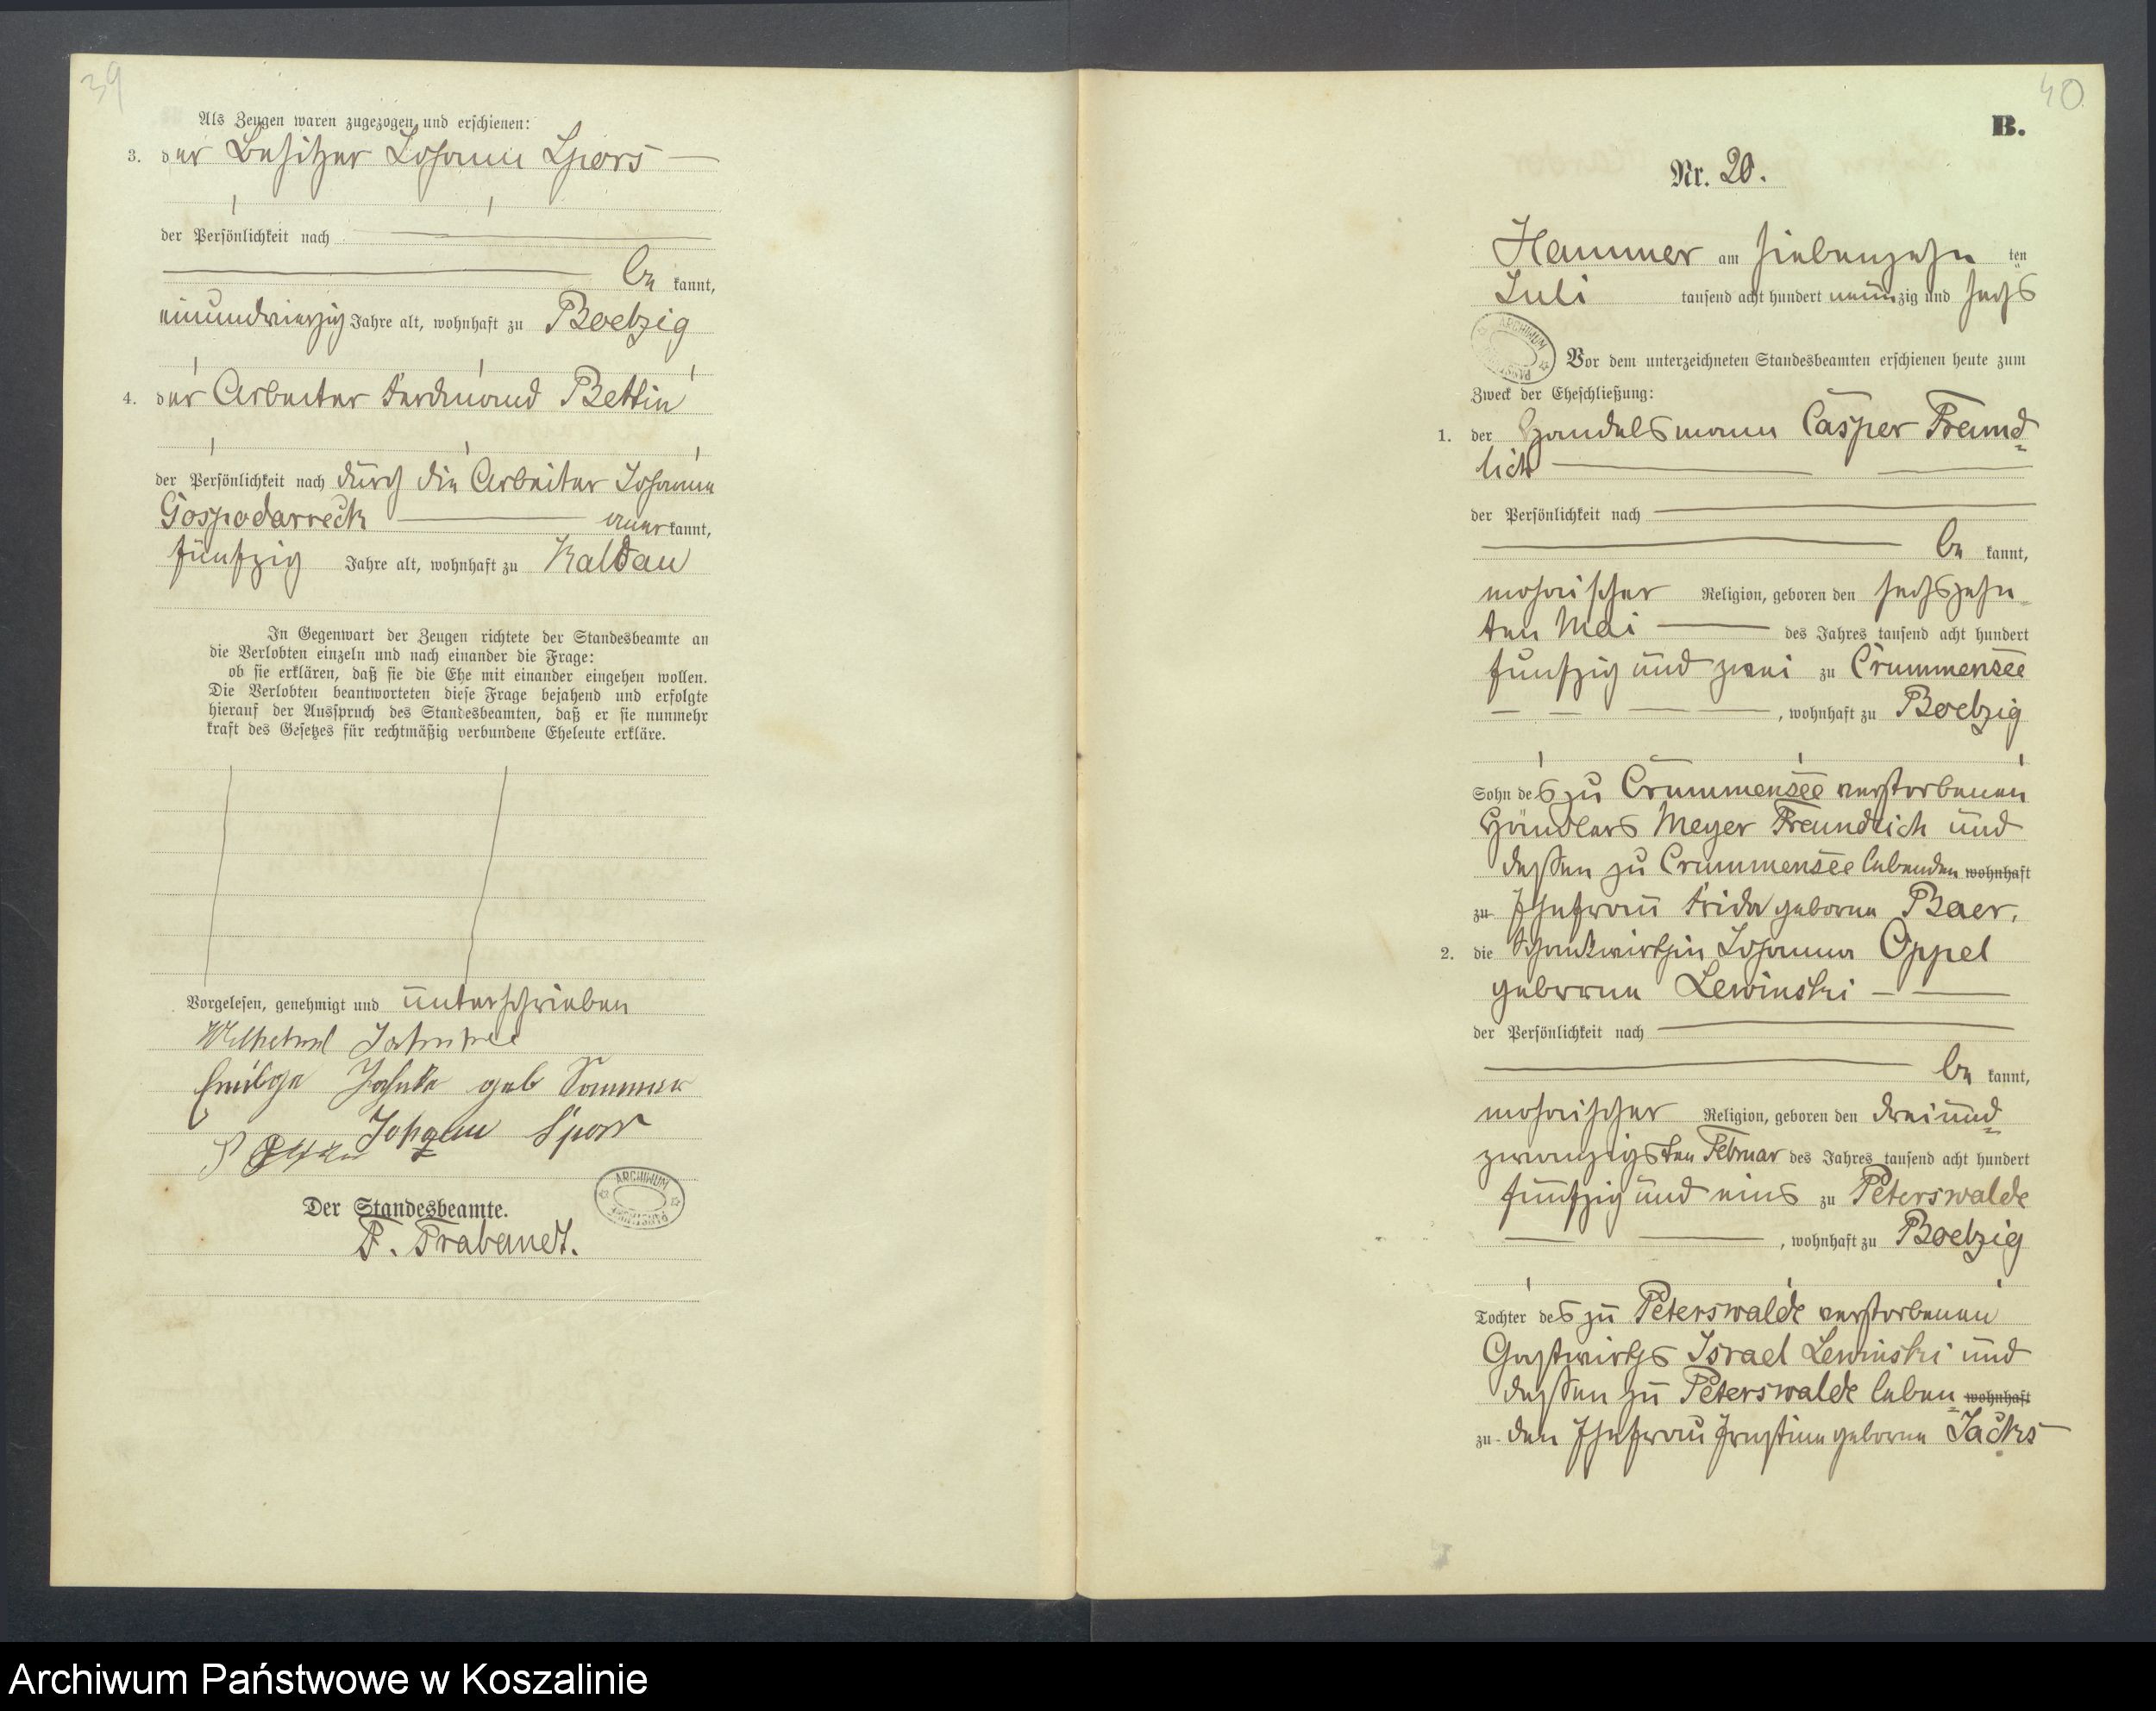 39
Als Zeugen waren zugezogen und erschienen:
3. der Besitzer Johann Spors
der Persönlichkeit nach
bekannt,
einundvierzig Jahre alt, wohnhaft zu Boelzig
4. der Arbeiter Ferdinand Bettin
der Persönlichkeit nach durch die Arbeiter Johann
Gospodarreck anerkannt,
fünfzig Jahre alt, wohnhaft zu Kaldau
In Gegenwart der Zeugen richtete der Standesbeamte an
die Verlobten einzeln und nach einander die Frage:
ob sie erklären, daß sie die Ehe mit einander eingehen wollen.
Die Verlobten beantworteten diese Frage bejahend und erfolgte
hierauf der Ausspruch des Standesbeamten, daß er sie nunmehr
kraft des Gesetzes für rechtmäßig verbundene Eheleute erkläre.
Vorgelesen, genehmigt und unterschrieben
Wilhelm Jahnke
Jahnke geb Sommer
Johann Spors
ARCHIWUM
Der Standesbeamte.
F. Trabandt.
40
B.
Nr. 20.
Hammer am siebenzehnten
Juli tausend acht hundert neunzig und sechs
ARCHIWUM
Vor dem unterzeichneten Standesbeamten erschienen heute zum
Zweck der Eheschließung:
1. der Handelsmann Casper Freund=
lich
der Persönlichkeit nach
bekannt,
mosaischer Religion, geboren den sechszehn=
ten Mai des Jahres tausend acht hundert
fünfzig und zwei zu Crummensee
, wohnhaft zu Boelzig
Sohn des zu Crummensee verstorbenen
Händlers Meyer Freundlich und
dessen zu Crummensee lebenden wohnhaft
zu Ehefrau Frida geborne Baer.
2. die Schankwirthin Johanna Oppel
geborne Lewinski
der Persönlichkeit nach
bekannt,
mosaischer Religion, geboren den dreiund=
zwanzigsten Februar des Jahres tausend acht hundert
fünfzig und eins zu Peterswalde
, wohnhaft zu Boelzig
Tochter des zu Peterswalde verstorbenen
Gastwirths Israel Lewinski und
dessen zu Peterswalde leben= wohnhaft
zu den Ehefrau Ernstine geborne Jacks
Archiwum Państwowe w Koszalinie